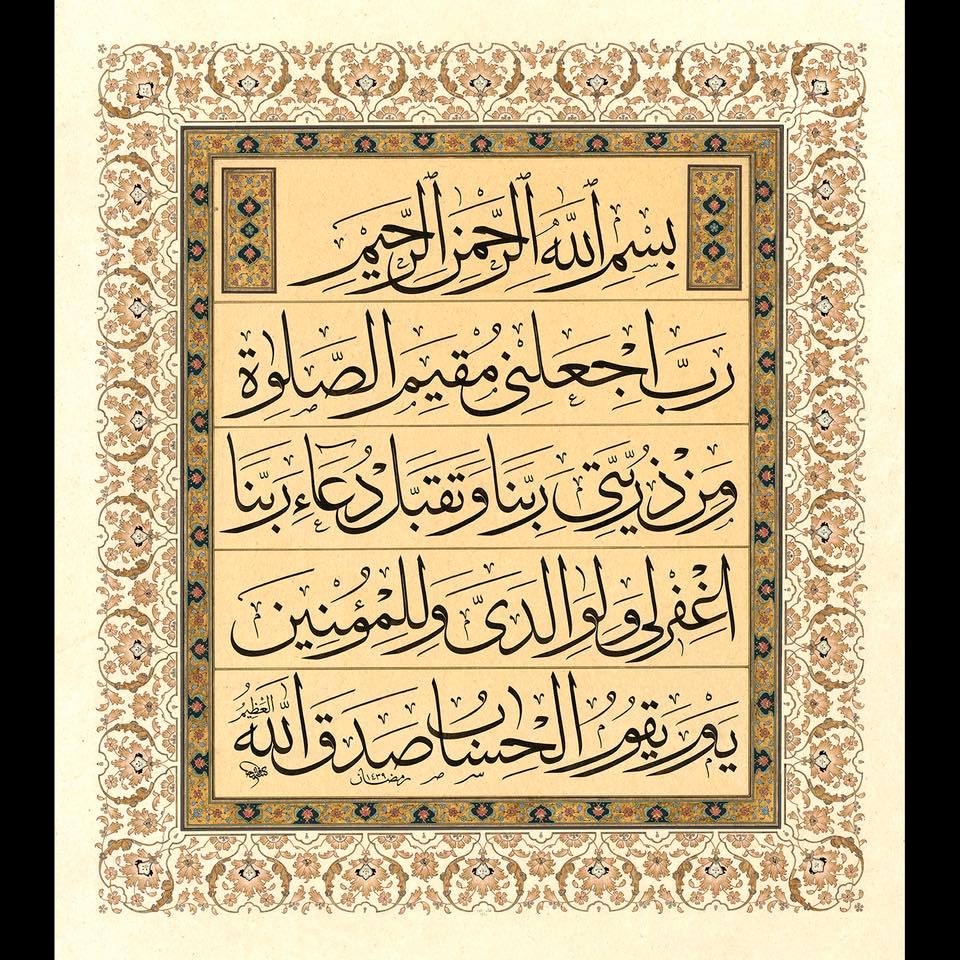 بِسْمِ ٱللَّهِ ٱلرَّحْمَنِ ٱلرَّحِيمِ
رَبِّ اجْعَلْنِى مُقِيمَ الصَّلَوٰةِ
وَمِنْ ذُرِّيَّتِى رَبَّنَا وَتَقَبَّلْ دُعَاءِ رَبَّنَا
اغْفِرْ لِى وَلِوَالِدَىَّ وَلِلْمُؤْمِنِينَ
يَوْمَ يَقُومُ الْحِسَابُ صَدَقَ اللَّهُ
العَظِيمُ
رمضان ١٤٣٩